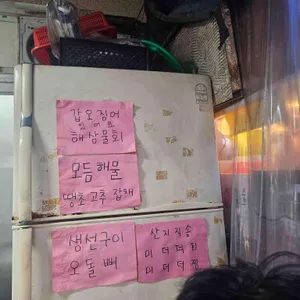 갑오징어
있어요
해삼물회
모듬해물
땡초고추잡채
생선구이
오돌뼈
산지직송
미더덕회
미더덕찜